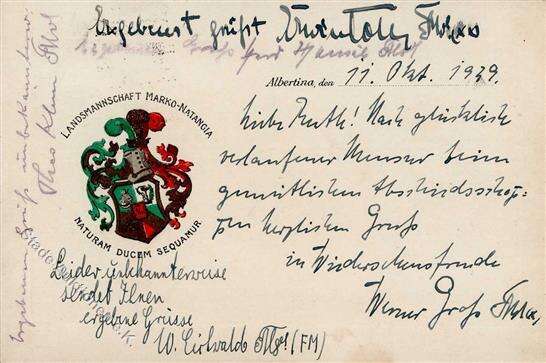 Ergebenst grüßt
Albertina, den 11. Okt. 1929.
LANDSMANNSCHAFT MARKO-NATANGIA
NATURAM DUCEM SEQUAMUR
Liebe Ruth! Nach glücklich
verlaufener Mensur beim
gemütlichen Abschiedsschop-
pen herzlichen Gruß
in Wiedersehensfreude
Werner Groß
Leider unbekannterweise
sendet Ihnen
ergebene Grüsse
W. (FM)
Ergebenen Gruß unbekannterw.
Theo Klein